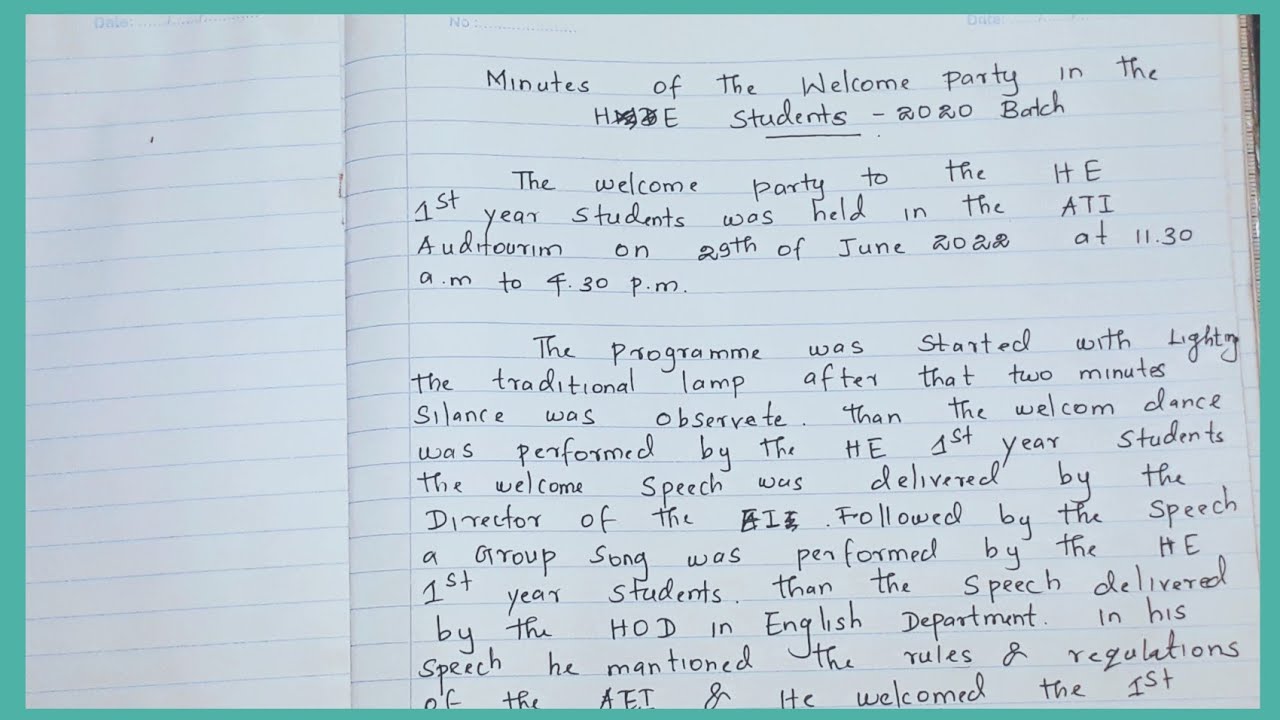 Date: ....../....../..................
No :........................
Date: ....../....../..................
Minutes of The Welcome party in the
HE Students - 2020 Batch
The welcome party to the HE
1st year students was held in the ATI
Auditourim on 29th of June 2022 at 11.30
a.m to 4.30 p.m.
The programme was started with Lighting
the traditional lamp after that two minutes
Silance was observate. than the welcom dance
was performed by the HE 1st year students
the welcome speech was delivered by the
Director of the . Followed by the speech
a Group Song was performed by the HE
1st year students. than the speech delivered
by the HOD in English Department. In his
speech he mantioned the rules & regulations
of the & He welcomed the 1st